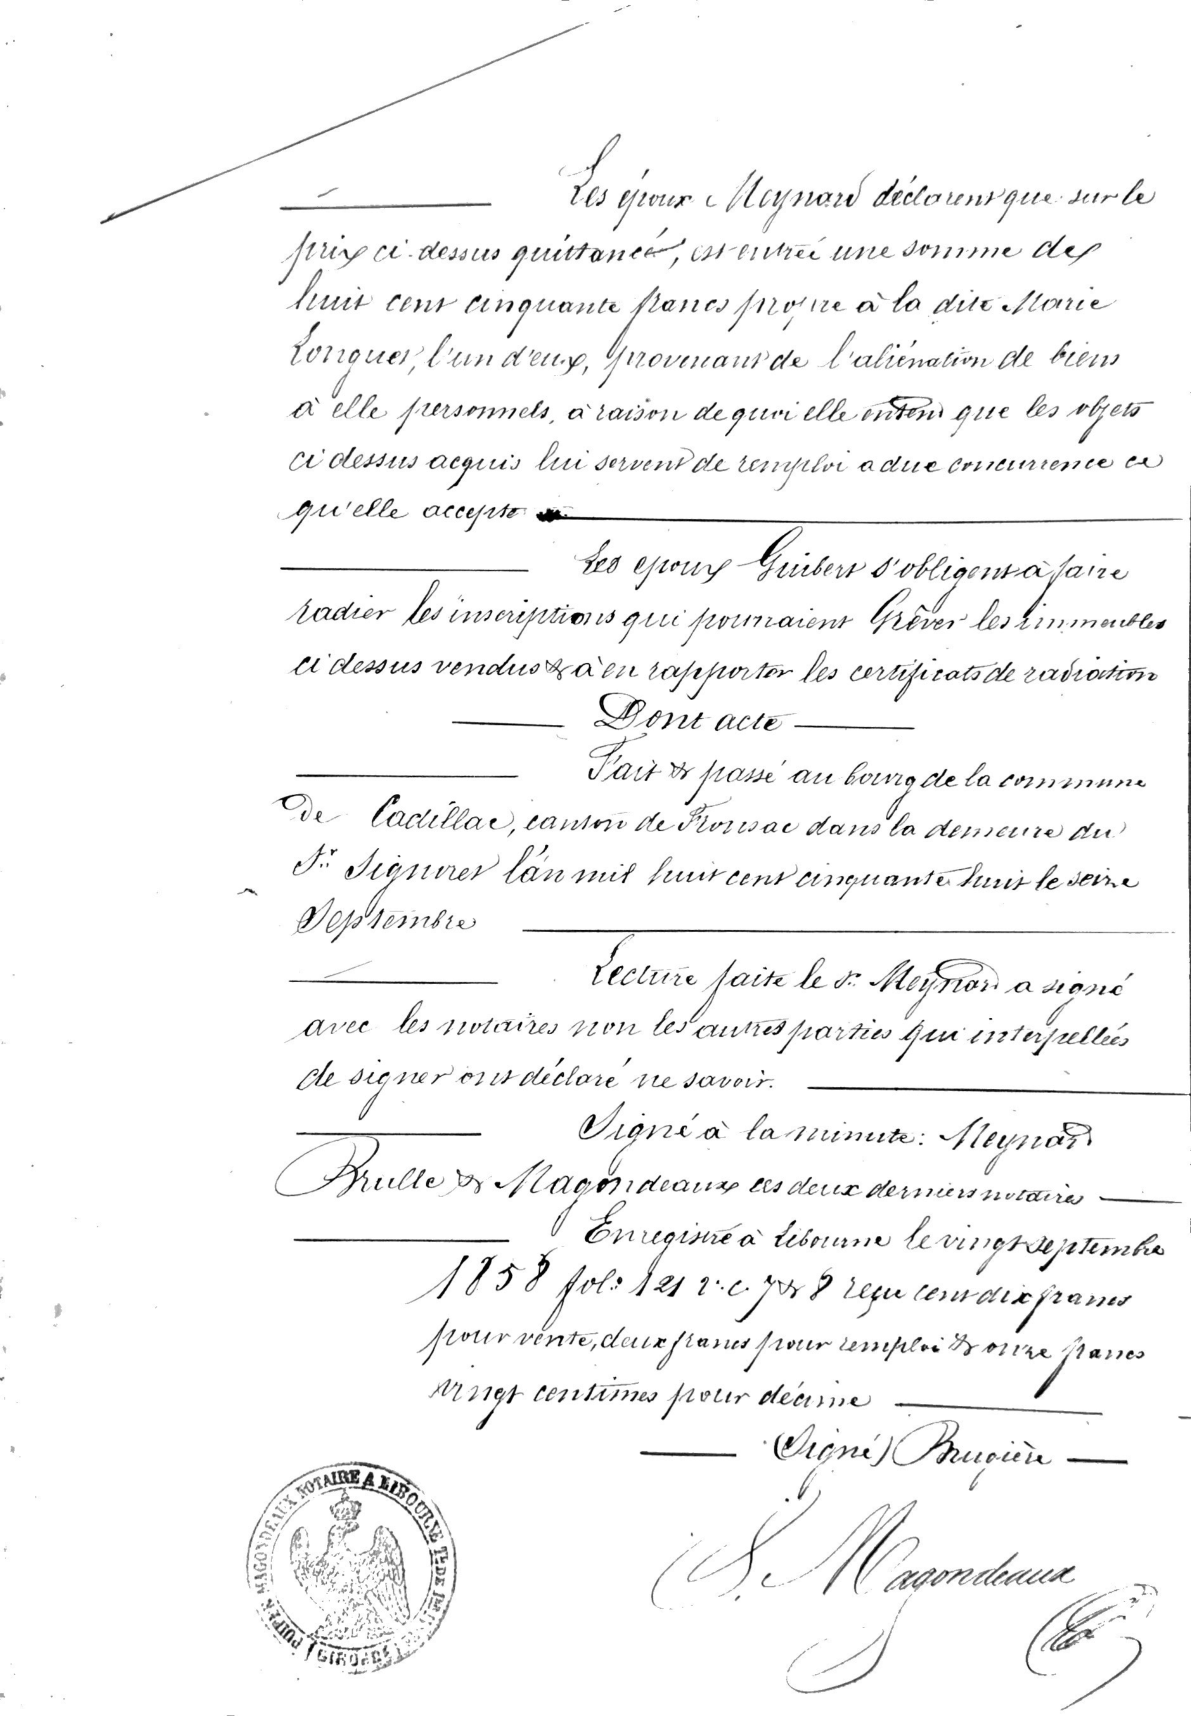 Les époux Meynard déclarent que sur le
prix ci-dessus quittancé, est entrée une somme de
huit cent cinquante francs propre à la dite Marie
Longuet, l'un d'eux, provenant de l'aliénation de biens
à elle personnels, à raison de quoi elle entend que les objets
ci dessus acquis lui servent de remploi a due concurrence ce
qu'elle accepte
Les epoux Guibert s'obligent à faire
radier les inscriptions qui pourraient Grêver les immeubles
ci dessus vendus & à en rapporter les certificats de radiation
Dont acte
Fait & passé au bourg de la commune
de Cadillac, canton de Fronsac dans la demeure du
Sr. Signoret l'an mil huit cent cinquante huit le seize
Septembre
Lecture faite le sr. Meynard a signé
avec les notaires non les autres parties qui interpellées
de signer ont déclaré ne savoir.
Signé à la minute: Meynard
Brulle & Magondeaux ces deux derniers notaires
Enregistré à Libourne le vingt septembre
1858 fol: 121 r. c. 7 & 8 reçu cent dix francs
pour vente, deux francs pour remploi & onze francs
vingt centimes pour décime
(Signé) Brugière
S. Magondeaux
MAGONDEAUX NOTAIRE A LIBOURNE
(GIRONDE)